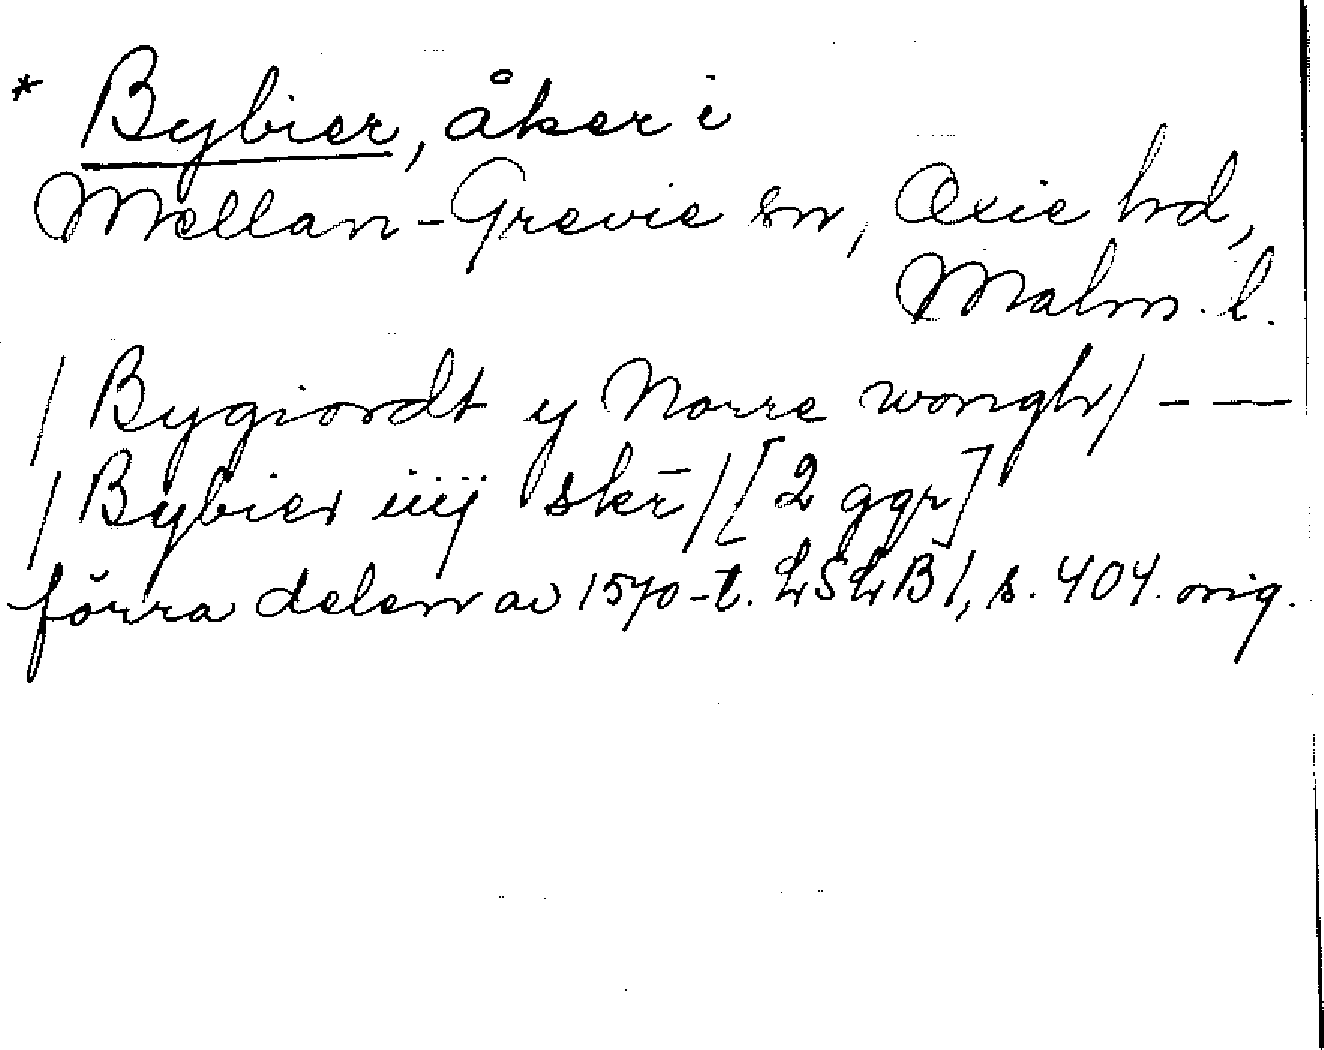 * Bybier, åker i
Mellan-Grevie sn, Oxie hd,
Malm. l.
/ Bygiordt y Norre wongh / - —
/ Bybier iiij skr̄ / [2 ggr]
förra delen av 1570-t. LSLB 1, s. 404. orig.